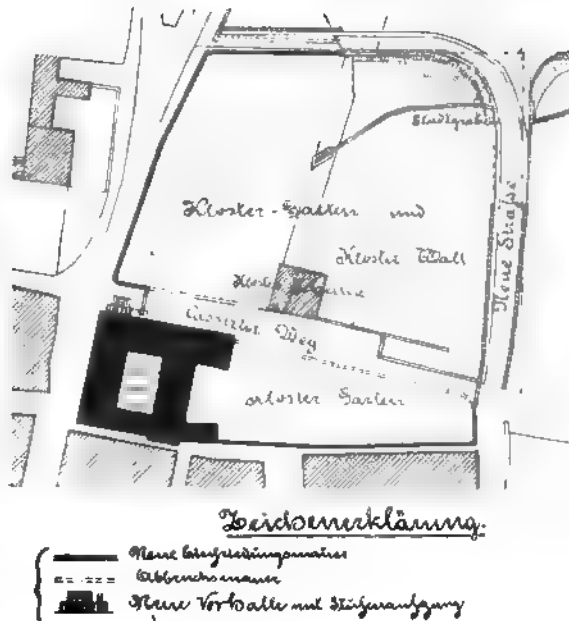 Stadtgraben
Kloster-Garten und
Kloster Wall
Neue Straße
Kloster
Weg
Kloster Garten
Zeichenerklärung.
Neue Einfriedungsmauer
Abbruchsmauer
Neue Vorhalle mit